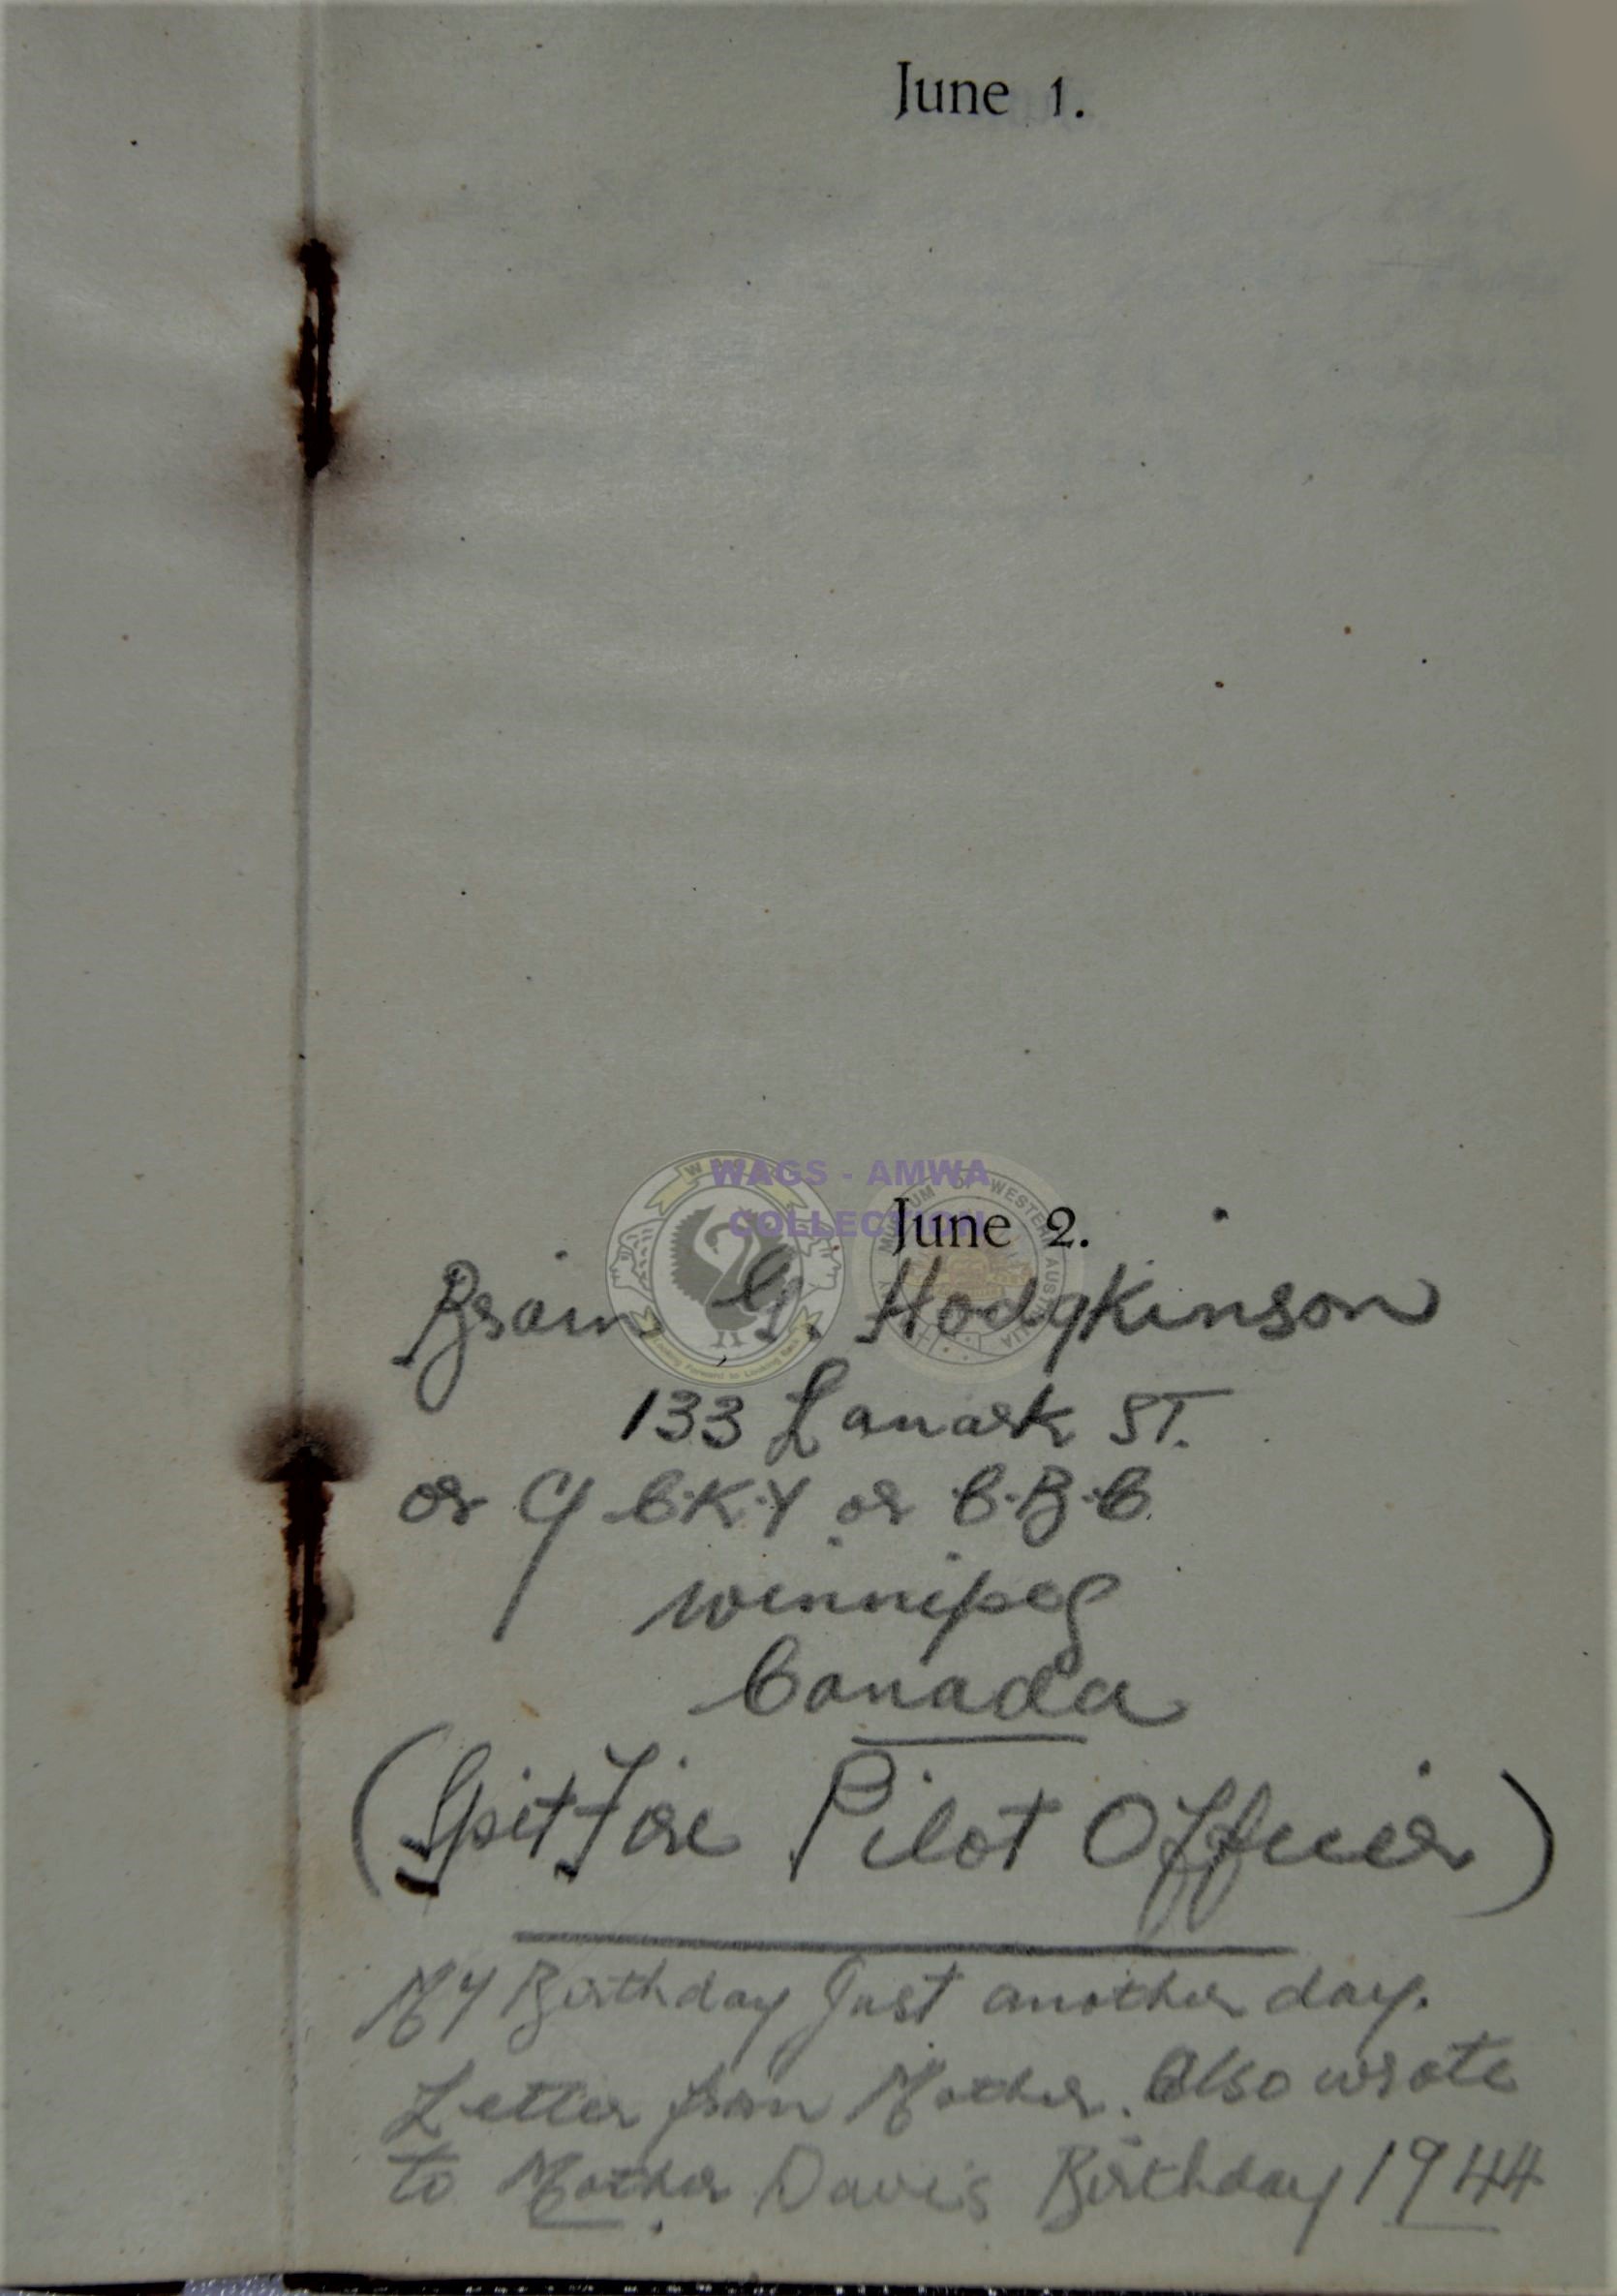 June 1.
WAGS - AMWA
COLLECTION
June 2.
Brain G. Hodgkinson
133 Lanark ST.
or C/ C.K.Y or C.B.C.
Winnipeg
Canada
(SpitFire Pilot Officer)
My Birthday Just another day.
Letter from Mother. Also wrote
to Mother. Davis Birthday 1944